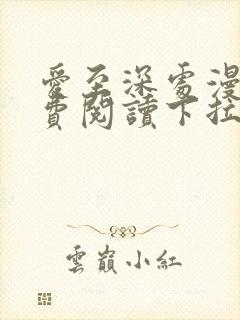 愛至深處漫
費閱讀下拉
雲巔小紅